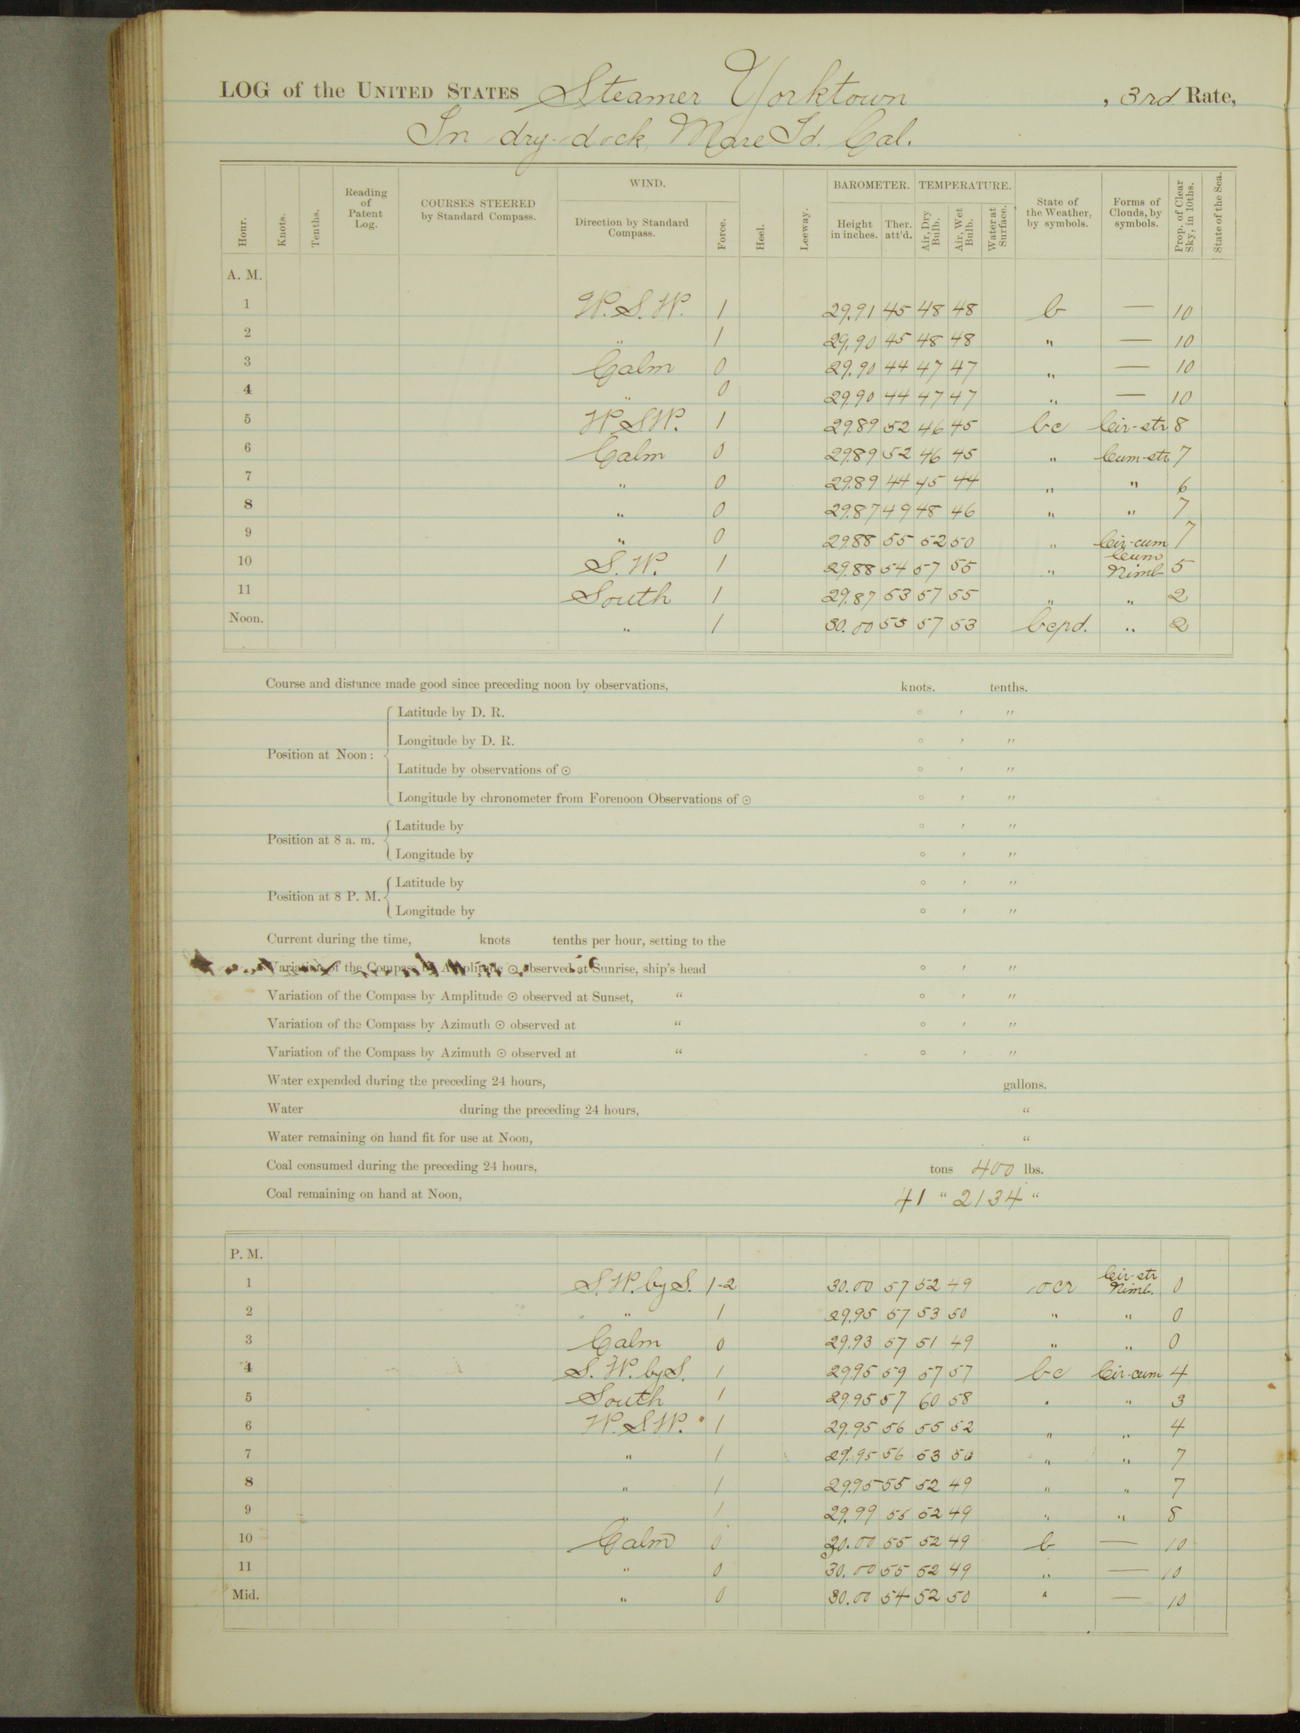 LOG of the UNITED STATES Steamer Yorktown , 3rd Rate,
In dry-dock, Mare Id. Cal.
Hour. Knots. Tenths. Reading of Patent Log. COURSES STEERED by Standard Compass. WIND. Direction by Standard Compass. Force. Heel. Leeway. BAROMETER. Height in inches. Ther. att'd. TEMPERATURE. Air, Dry Bulb. Air, Wet Bulb. Water at Surface. State of the Weather, by symbols. Forms of Clouds, by symbols. Prop. of Clear Sky, in 10ths. State of the Sea.
A. M.
1 W.S.W. 1 29.91 45 48 48 b — 10
2 " 1 29.90 45 48 48 " — 10
3 Calm 0 29.90 44 47 47 " — 10
4 " 0 29.90 44 47 47 " — 10
5 W.S.W. 1 29.89 52 46 45 bc Cir-str 8
6 Calm 0 29.89 52 46 45 " Cum-str 7
7 " 0 29.89 44 45 44 " " 6
8 " 0 29.87 49 48 46 " " 7
9 " 0 29.88 55 52 50 " Cir-cum 7
10 S.W. 1 29.88 54 57 55 " Cum Nimb 5
11 South 1 29.87 53 57 55 " " 2
Noon. " 1 30.00 55 57 53 bcpd. " 2
Course and distance made good since preceding noon by observations, knots. tenths.
Position at Noon: Latitude by D. R. ° ′ ″
Longitude by D. R. ° ′ ″
Latitude by observations of ☉ ° ′ ″
Longitude by chronometer from Forenoon Observations of ☉ ° ′ ″
Position at 8 a. m. Latitude by ° ′ ″
Longitude by ° ′ ″
Position at 8 P. M. Latitude by ° ′ ″
Longitude by ° ′ ″
Current during the time, knots tenths per hour, setting to the
Variation of the Compass by Amplitude ☉ observed at Sunrise, ship's head ° ′ ″
Variation of the Compass by Amplitude ☉ observed at Sunset, " ° ′ ″
Variation of the Compass by Azimuth ☉ observed at " ° ′ ″
Variation of the Compass by Azimuth ☉ observed at " ° ′ ″
Water expended during the preceding 24 hours, gallons.
Water during the preceding 24 hours, "
Water remaining on hand fit for use at Noon, "
Coal consumed during the preceding 24 hours, tons 400 lbs.
Coal remaining on hand at Noon, 41 " 2134 "
P. M.
1 S.W. by S. 1-2 30.00 57 52 49 ocr Cir-str Nimb. 0
2 " 1 29.95 57 53 50 " " 0
3 Calm 0 29.93 57 51 49 " " 0
4 S.W. by S. 1 29.95 59 57 57 bc Cir-cum 4
5 South 1 29.95 57 60 58 " " 3
6 W.S.W. 1 29.95 56 55 52 " " 4
7 " 1 29.95 56 53 50 " " 7
8 " 1 29.95 55 52 49 " " 7
9 " 1 29.99 55 52 49 " " 8
10 Calm 0 30.00 55 52 49 b — 10
11 " 0 30.00 55 52 49 " — 10
Mid. " 0 30.00 54 52 50 " — 10